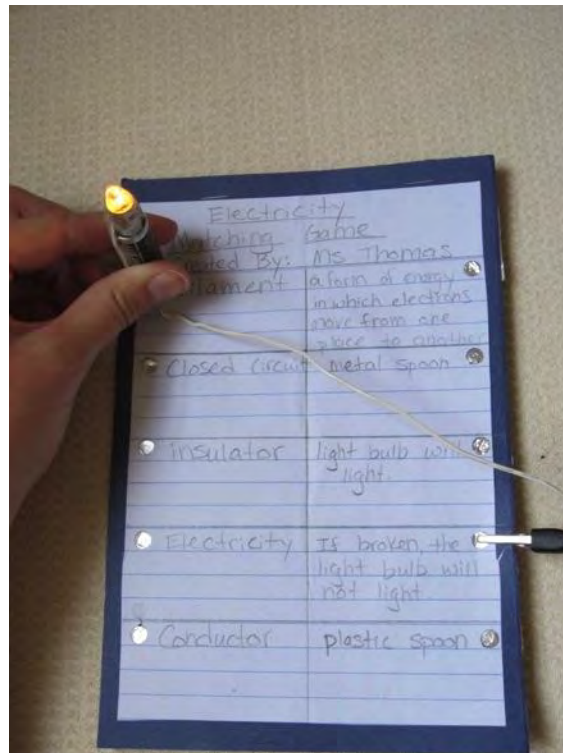 Electricity
Matching Game
Created By: Ms Thomas
Filament
a form of energy
in which electrons
move from one
place to another
Closed circuit
metal spoon
insulator
light bulb will
light.
Electricity
If broken, the
light bulb will
not light.
Conductor
plastic spoon